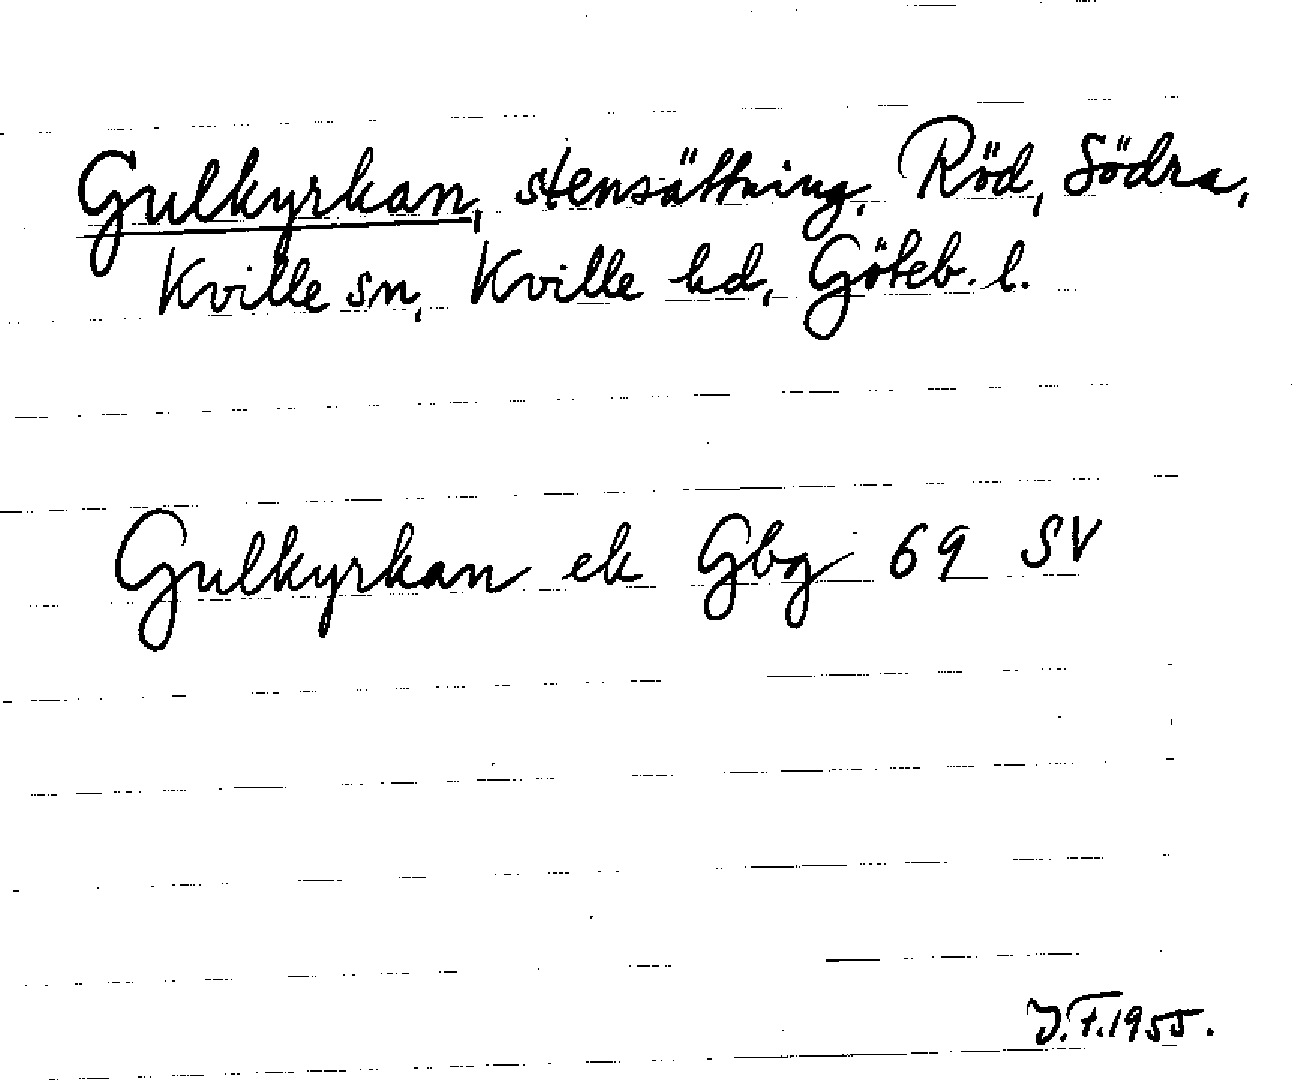 Gulkyrkan, stensättning, Röd, Södra,
Kville sn, Kville hd, Göteb. l.
Gulkyrkan ek Gbg 69 SV
J.F.1955.